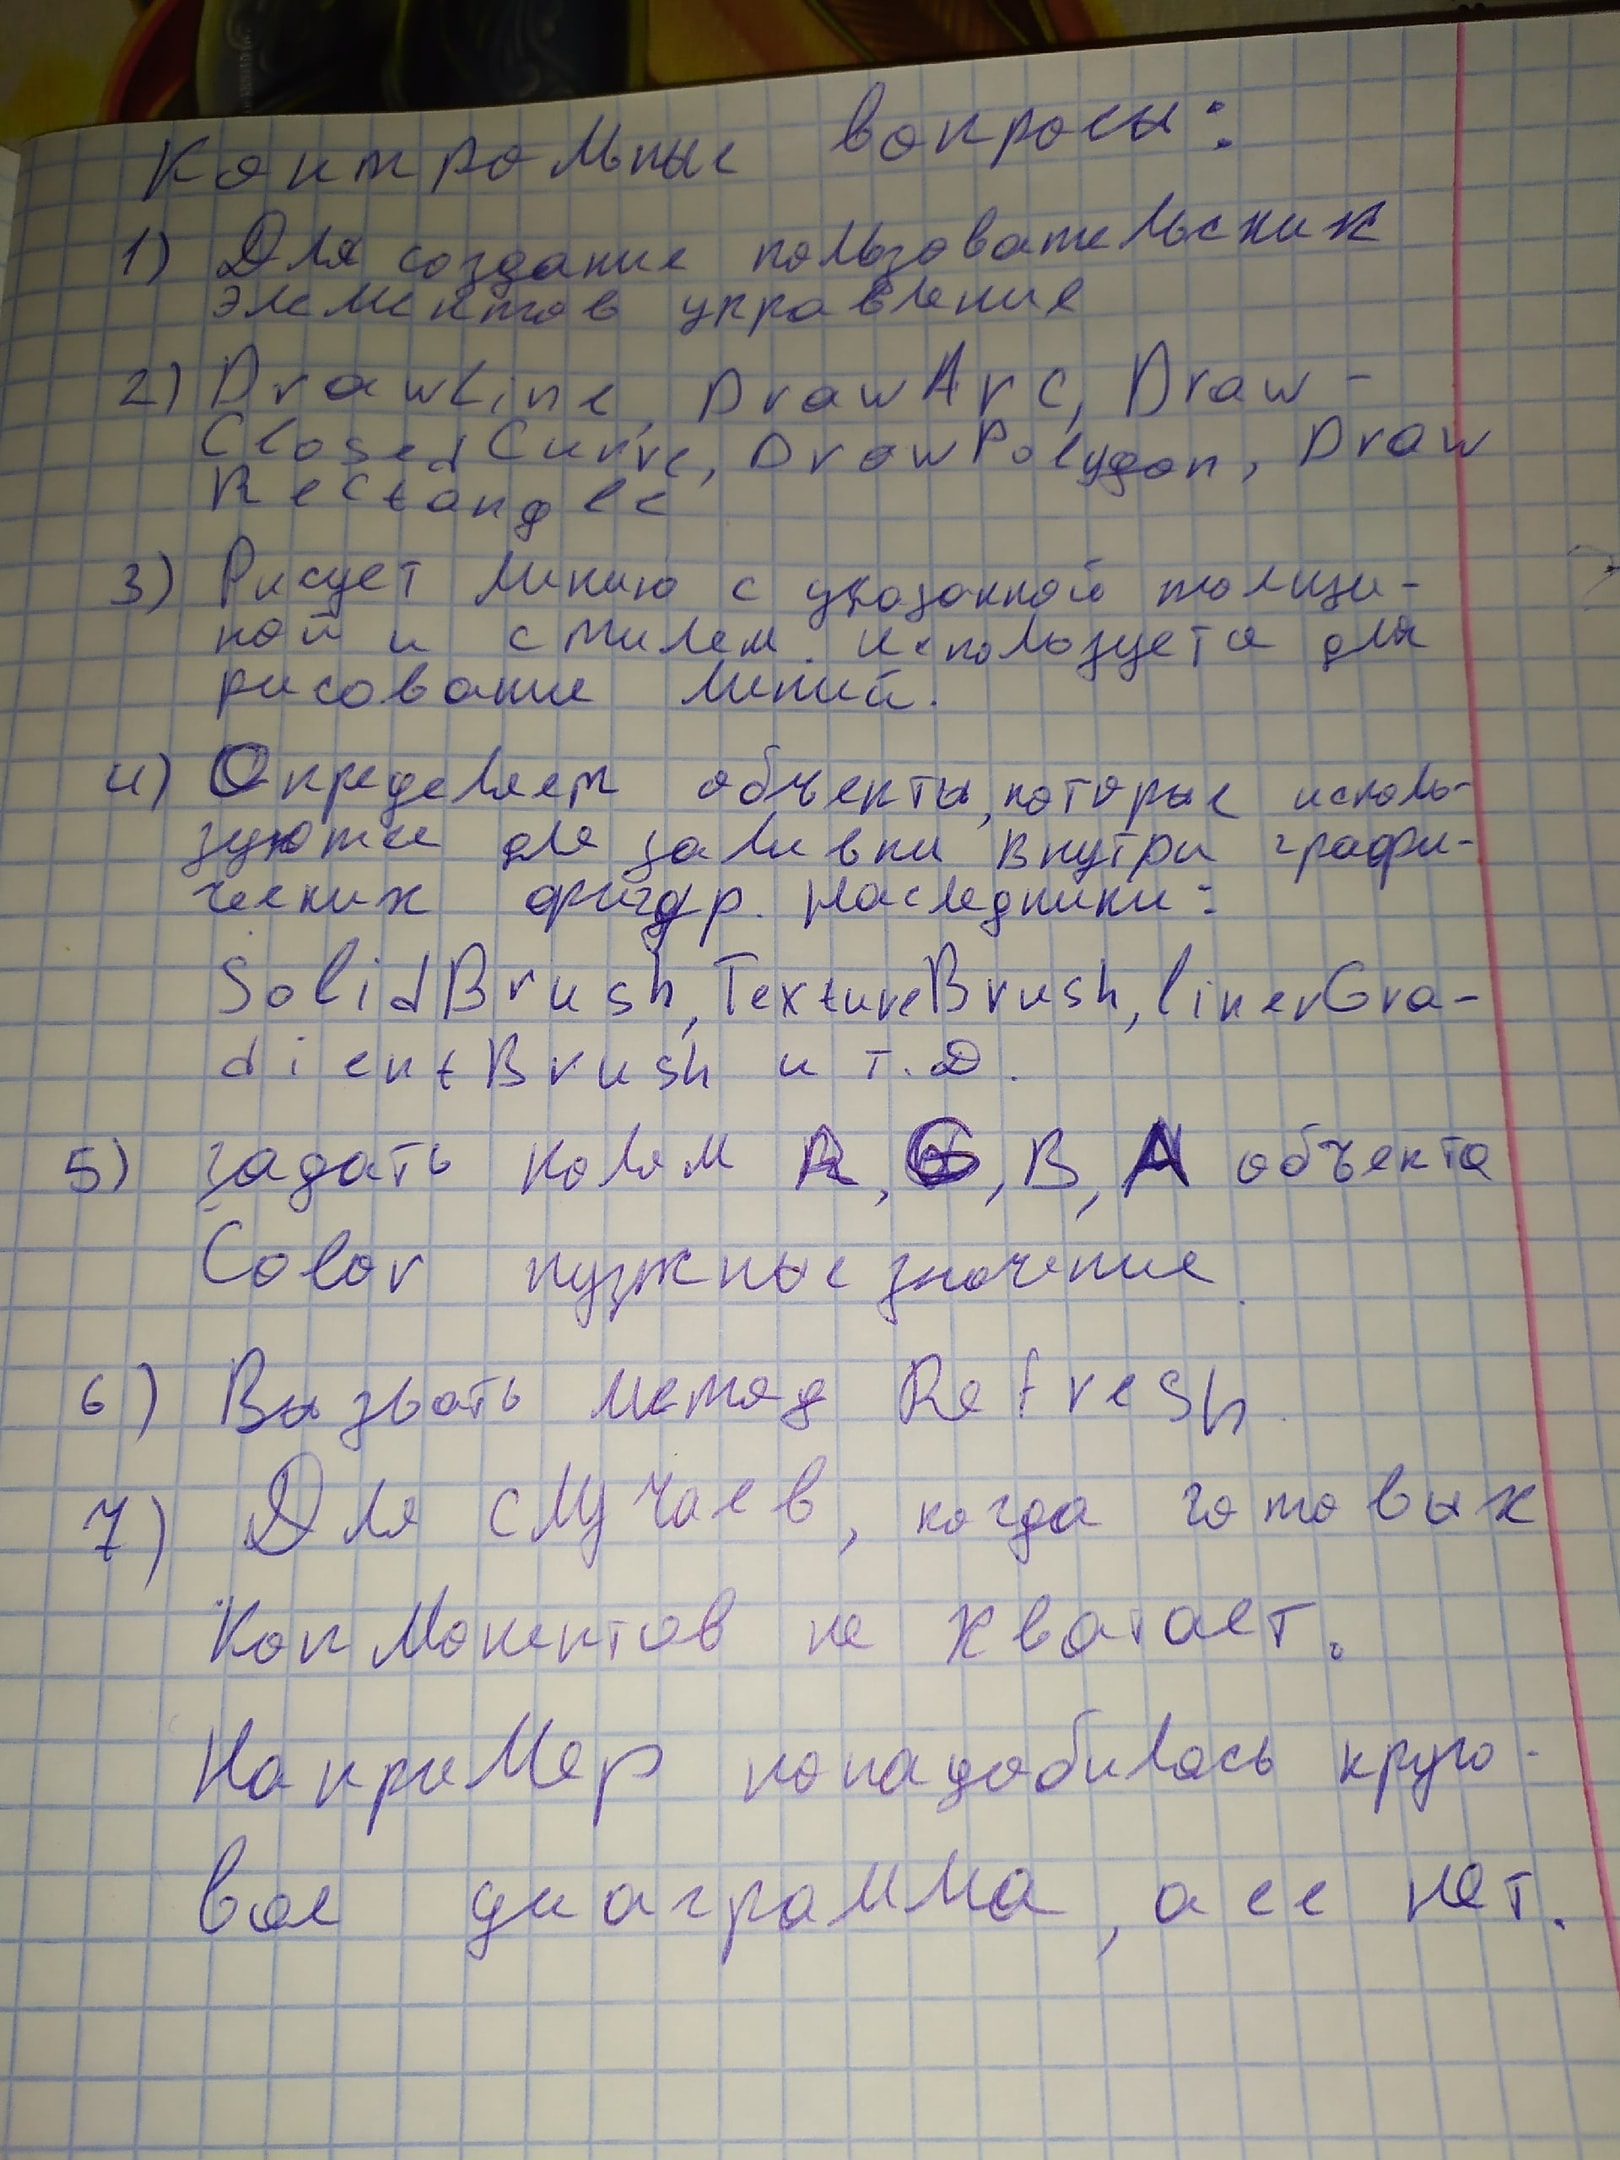 Контрольные вопросы:
1) Для создание пользовательских
элементов управление
2) DrawLine, DrawArc, Draw-
ClosedCurve, DrawPolygon, Draw
Rectangle
3) Рисует линию с указанной толщи-
ной и стилем. Используется для
рисование линий.
4) Определяет объекты, которые исполь-
зуются для заливки внутри графи-
ческих фигур. Наследники:
SolidBrush, TextureBrush, linerGra-
dientBrush и т.д.
5) задать полям R, G, B, A объекта
Color нужные значение.
6) Вызвать метод Refresh.
7) Для случаев, когда готовых
не хватает.
Например понадобилась круго-
вая диаграмма, а ее нет.